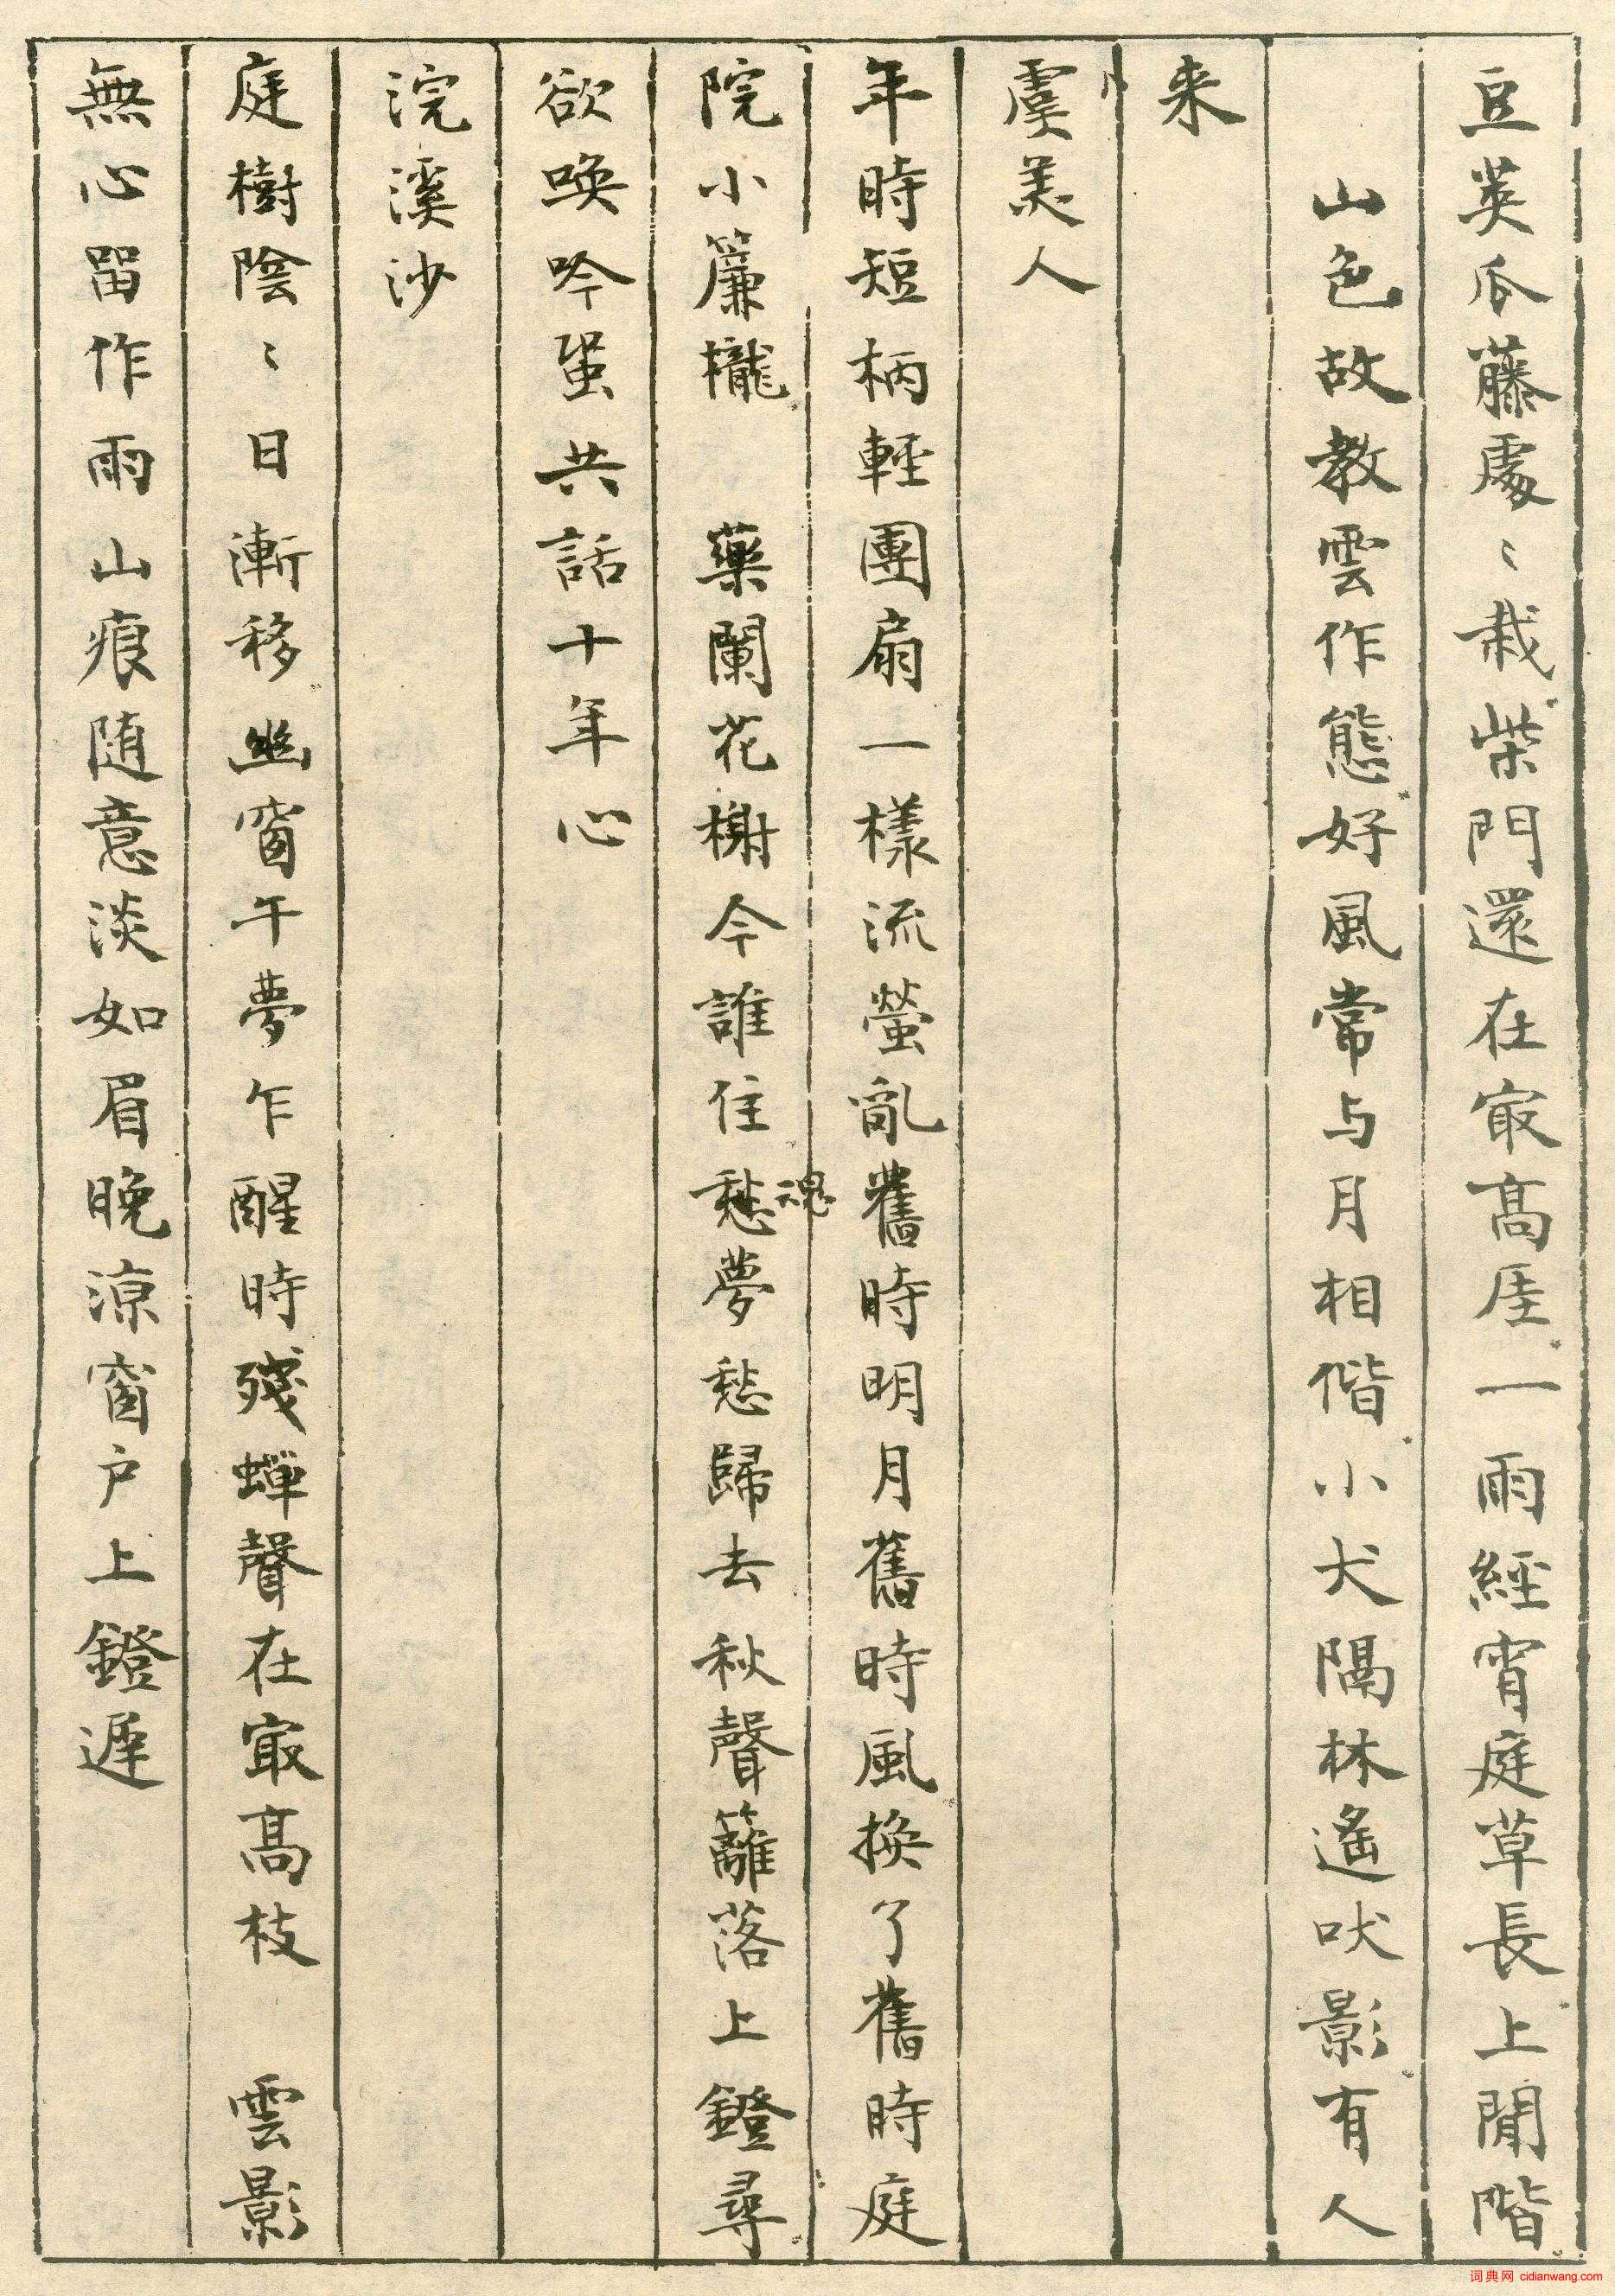 豆英瓜藤處〻栽柴門還在㝡高厓一雨經宵庭草長上閒階
山色故教雲作態好風常与月相偕小犬隔林遙吠影有人
来
虞美人
年時短柄輕團扇一樣流螢亂舊時明月舊時風換了舊時庭
院小簾櫳　藥闌花榭今誰住愁夢愁歸去秋聲籬落上鐙尋
魂
欲喚吟蛩共話十年心
浣溪沙
庭樹陰〻日漸移幽窗午夢乍醒時殘蟬聲在㝡高枝　雲影
無心留作雨山痕随意淡如眉晚涼窗戶上鐙遲
词典网 cidianwang.com